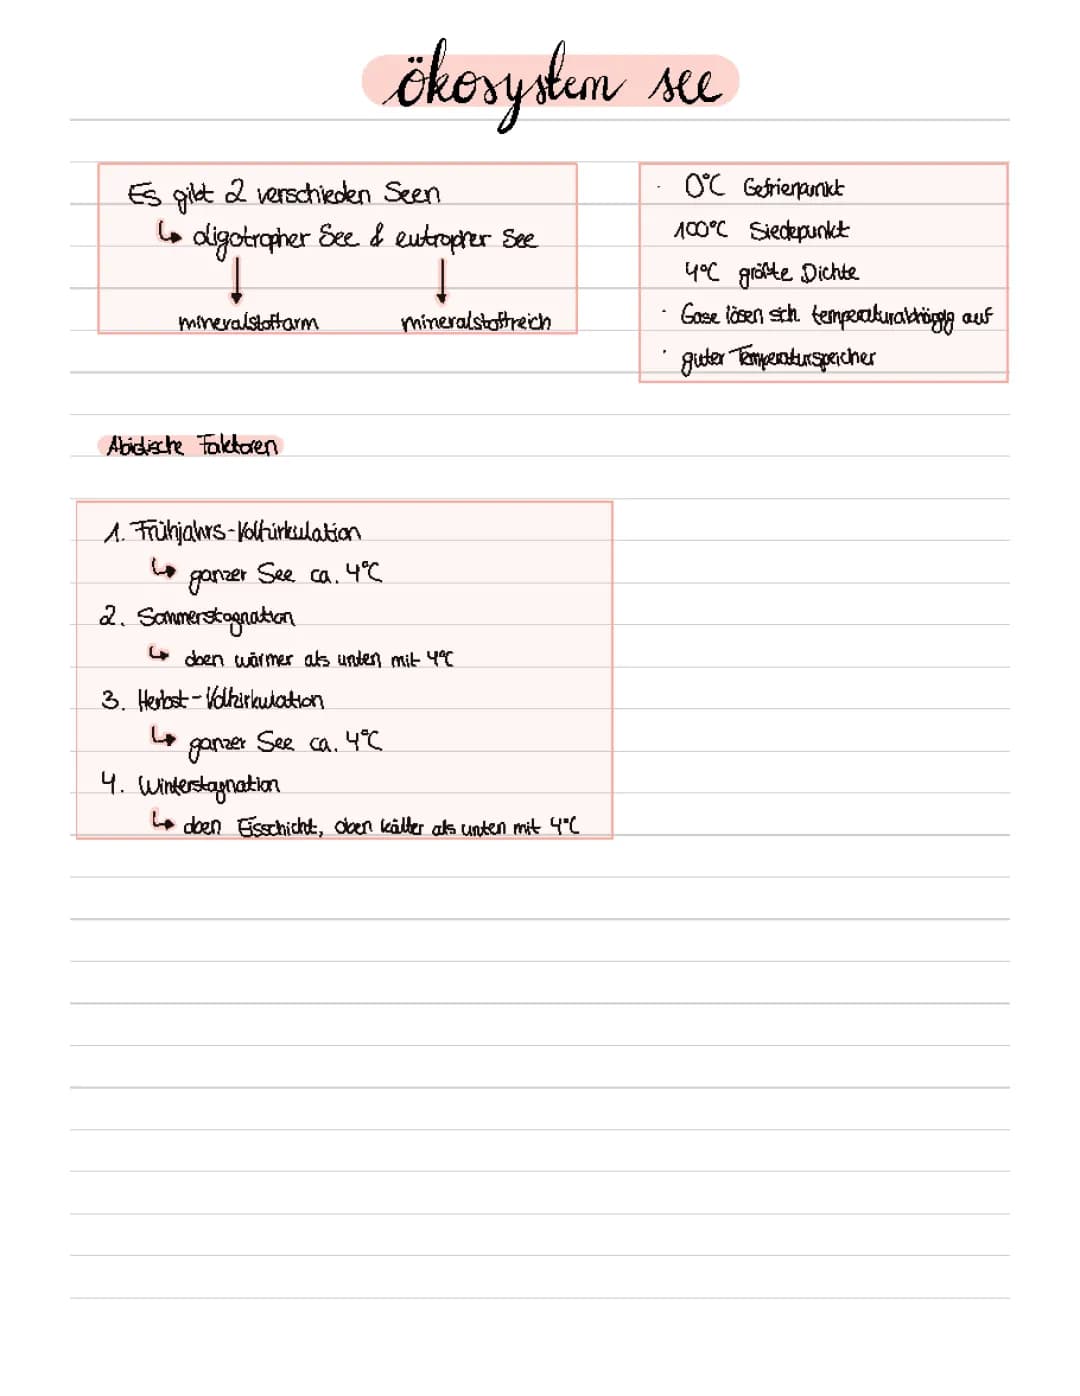 ökosystem see
Es gibt 2 verschieden Seen
↳ oligotropher See & eutropher See
mineralstoffarm mineralstoffreich
· 0°C Gefrierpunkt
100°C Siedepunkt
4°C größte Dichte
· Gase lösen sich temperaturabhängig auf
· guter Temperaturspeicher
Abiotische Faktoren
1. Frühjahrs-Vollzirkulation
↳ ganzer See ca. 4°C
2. Sommerstagnation
↳ oben wärmer als unten mit 4°C
3. Herbst-Vollzirkulation
↳ ganzer See ca. 4°C
4. Winterstagnation
↳ oben Eisschicht, oben kälter als unten mit 4°C